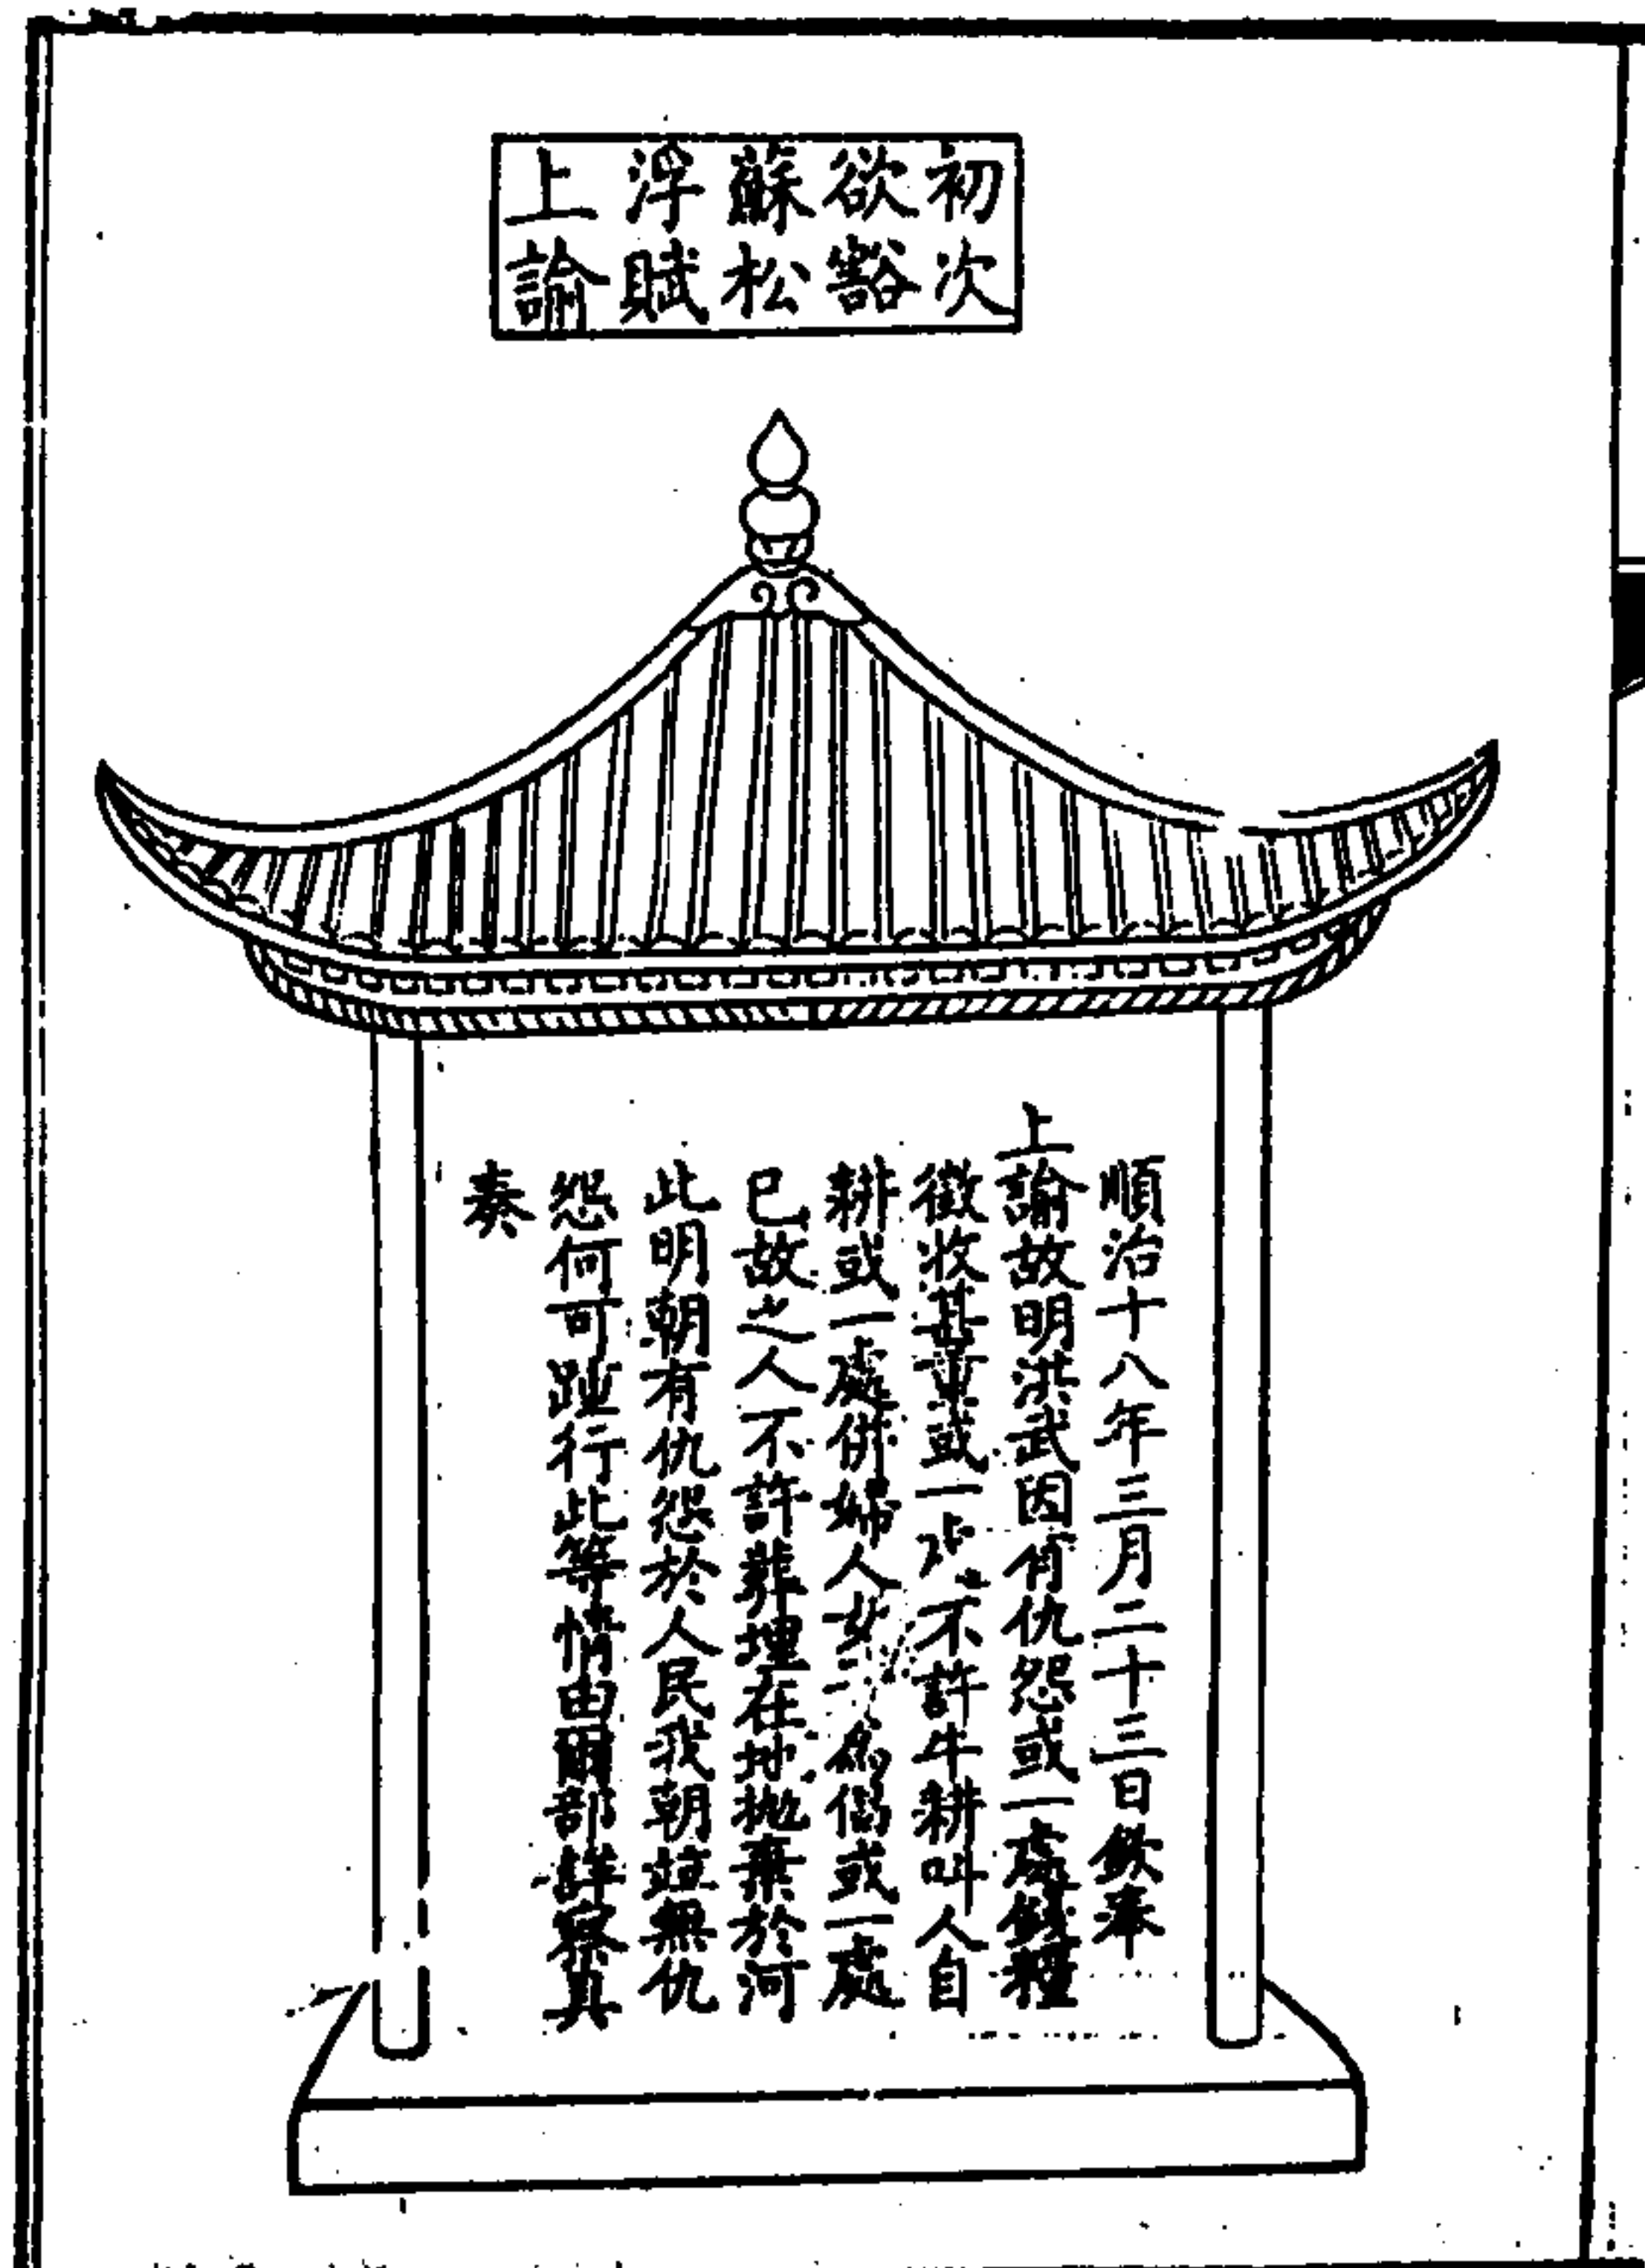 初次
欲豁
蘇松
浮賦
上諭
順治十八年三月二十三日欽奉
上諭故明洪武因有仇怨或一處錢糧
徵收甚重或一處不許牛耕叫人自
耕或一處併婦人女 為倡或一處
已故之人不許葬埋在村拋棄於河
此明朝有仇怨於人民我朝並無仇
怨何可踵行此等情由爾部詳察具
奏